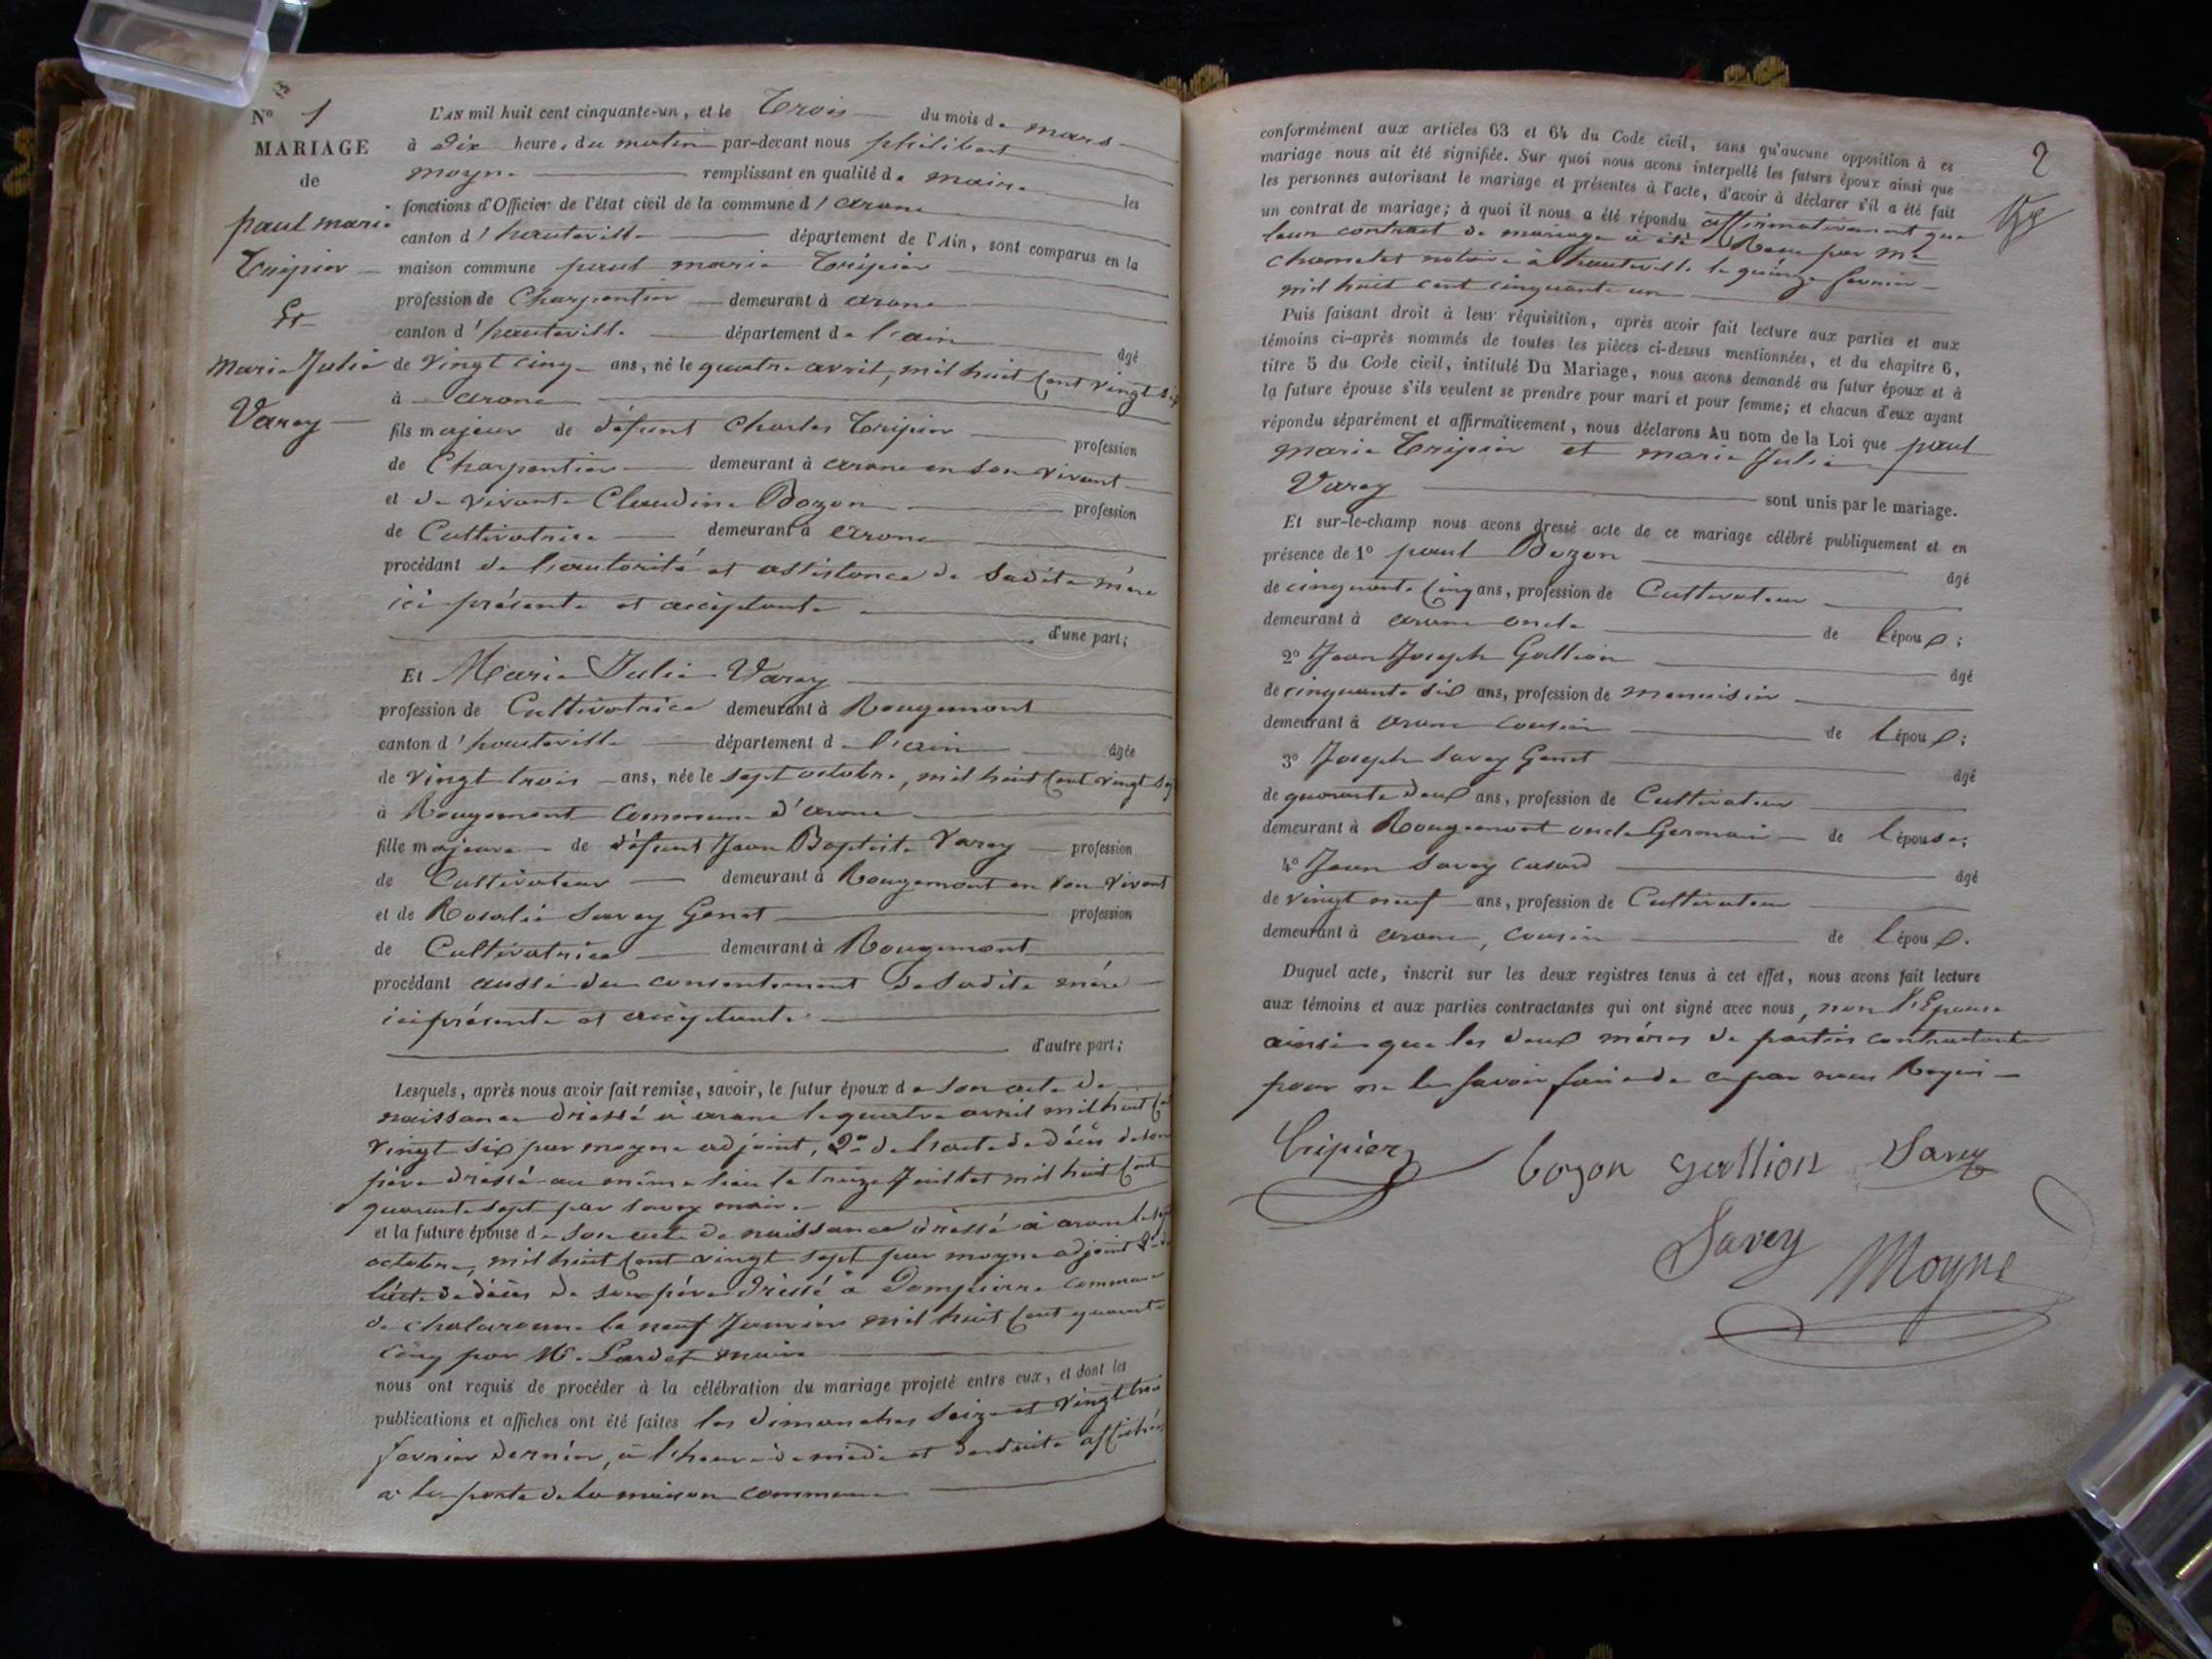 N° 1
MARIAGE
de
paul marie
Tripier
Et
Marie Julie
Varey
L'AN mil huit cent cinquante-un, et le Trois du mois de mars
à dix heures du matin par-devant nous philibert
moyne remplissant en qualité de maire les
fonctions d'Officier de l'état civil de la commune d'arane
canton d'hauteville département de l'Ain, sont comparus en la
maison commune paul marie Tripier
profession de Charpentier demeurant à arane
canton d'hauteville département de l'ain âgé
de vingt cinq ans, né le quatre avril, mil huit cent vingt six
à arane
fils majeur de défunt Charles Tripier profession
de Charpentier demeurant à arane en son vivant
et de vivante Claudine Bozon profession
de Cultivatrice demeurant à arane
procédant de l'autorité et assistance de sadite mère
ici présente et acceptante
d'une part;
Et Marie Julie Varey
profession de Cultivatrice demeurant à Rougemont
canton d'hauteville département de l'ain âgée
de vingt trois ans, née le sept octobre, mil huit cent vingt sept
à Rougemont Commune d'arane
fille majeure de défunt Jean Baptiste Varey profession
de Cultivateur demeurant à Rougemont en son vivant
et de Rosalie Savey Genet profession
de Cultivatrice demeurant à Rougemont
procédant aussi du consentement de sadite mère
ici présente et acceptante
d'autre part;
Lesquels, après nous avoir fait remise, savoir, le futur époux de son acte de
naissance dréssé à arane le quatre avril mil huit cent
vingt six par moyne adjoint, 2° de l'acte de décès de son
père dréssé au même lieu le treize Juillet mil huit cent
quarante sept par savey maire
et la future épouse de son acte de naissance dréssé à arane le sept
octobre, mil huit cent vingt sept par moyne adjoint 2° de
l'acte de décès de son père dréssé à Dompierre commune
de chalaronne le neuf Janvier mil huit cent quarante
cinq par M. Lardet maire
nous ont requis de procéder à la célébration du mariage projeté entre eux, et dont les
publications et affiches ont été faites les dimanches seize et vingt trois
fevrier dernier, à l'heure de midi et de suite affichés
a la porte de la maison commune
2
conformément aux articles 63 et 64 du Code civil, sans qu'aucune opposition à ce
mariage nous ait été signifiée. Sur quoi nous avons interpellé les futurs époux ainsi que
les personnes autorisant le mariage et présentes à l'acte, d'avoir à déclarer s'il a été fait
un contrat de mariage; à quoi il nous a été répondu affirmativement que
leur contract de mariage à été Reçu par Me
Chamelet notaire à hauteville le quinze fevrier
mil huit cent cinquante un
Puis faisant droit à leur réquisition, après avoir fait lecture aux parties et aux
témoins ci-après nommés de toutes les pièces ci-dessus mentionnées, et du chapitre 6,
titre 5 du Code civil, intitulé Du Mariage, nous avons demandé au futur époux et à
la future épouse s'ils veulent se prendre pour mari et pour femme; et chacun d'eux ayant
répondu séparément et affirmativement, nous déclarons Au nom de la Loi que paul
marie Tripier et marie Julie
Varey sont unis par le mariage.
Et sur-le-champ nous avons dressé acte de ce mariage célébré publiquement et en
présence de 1° paul Bozon âgé
de cinquante cinq ans, profession de Cultivateur
demeurant à arane oncle de l'époux;
2° Jean Joseph Gallion âgé
de cinquante six ans, profession de menuisier
demeurant à arane cousin de l'époux;
3° Joseph Savey Genet âgé
de quarante deux ans, profession de Cultivateur
demeurant à Rougemont oncle Germain de l'épouse;
4° Jean Savey Casard âgé
de vingt neuf ans, profession de Cultivateur
demeurant à arane, cousin de l'époux.
Duquel acte, inscrit sur les deux registres tenus à cet effet, nous avons fait lecture
aux témoins et aux parties contractantes qui ont signé avec nous, non l'Epouse
ainsi que les deux mères de parties contractantes
pour ne le savoir faire de ce par nous Requis
Tripier bozon gallion Savey
Savey Moyne